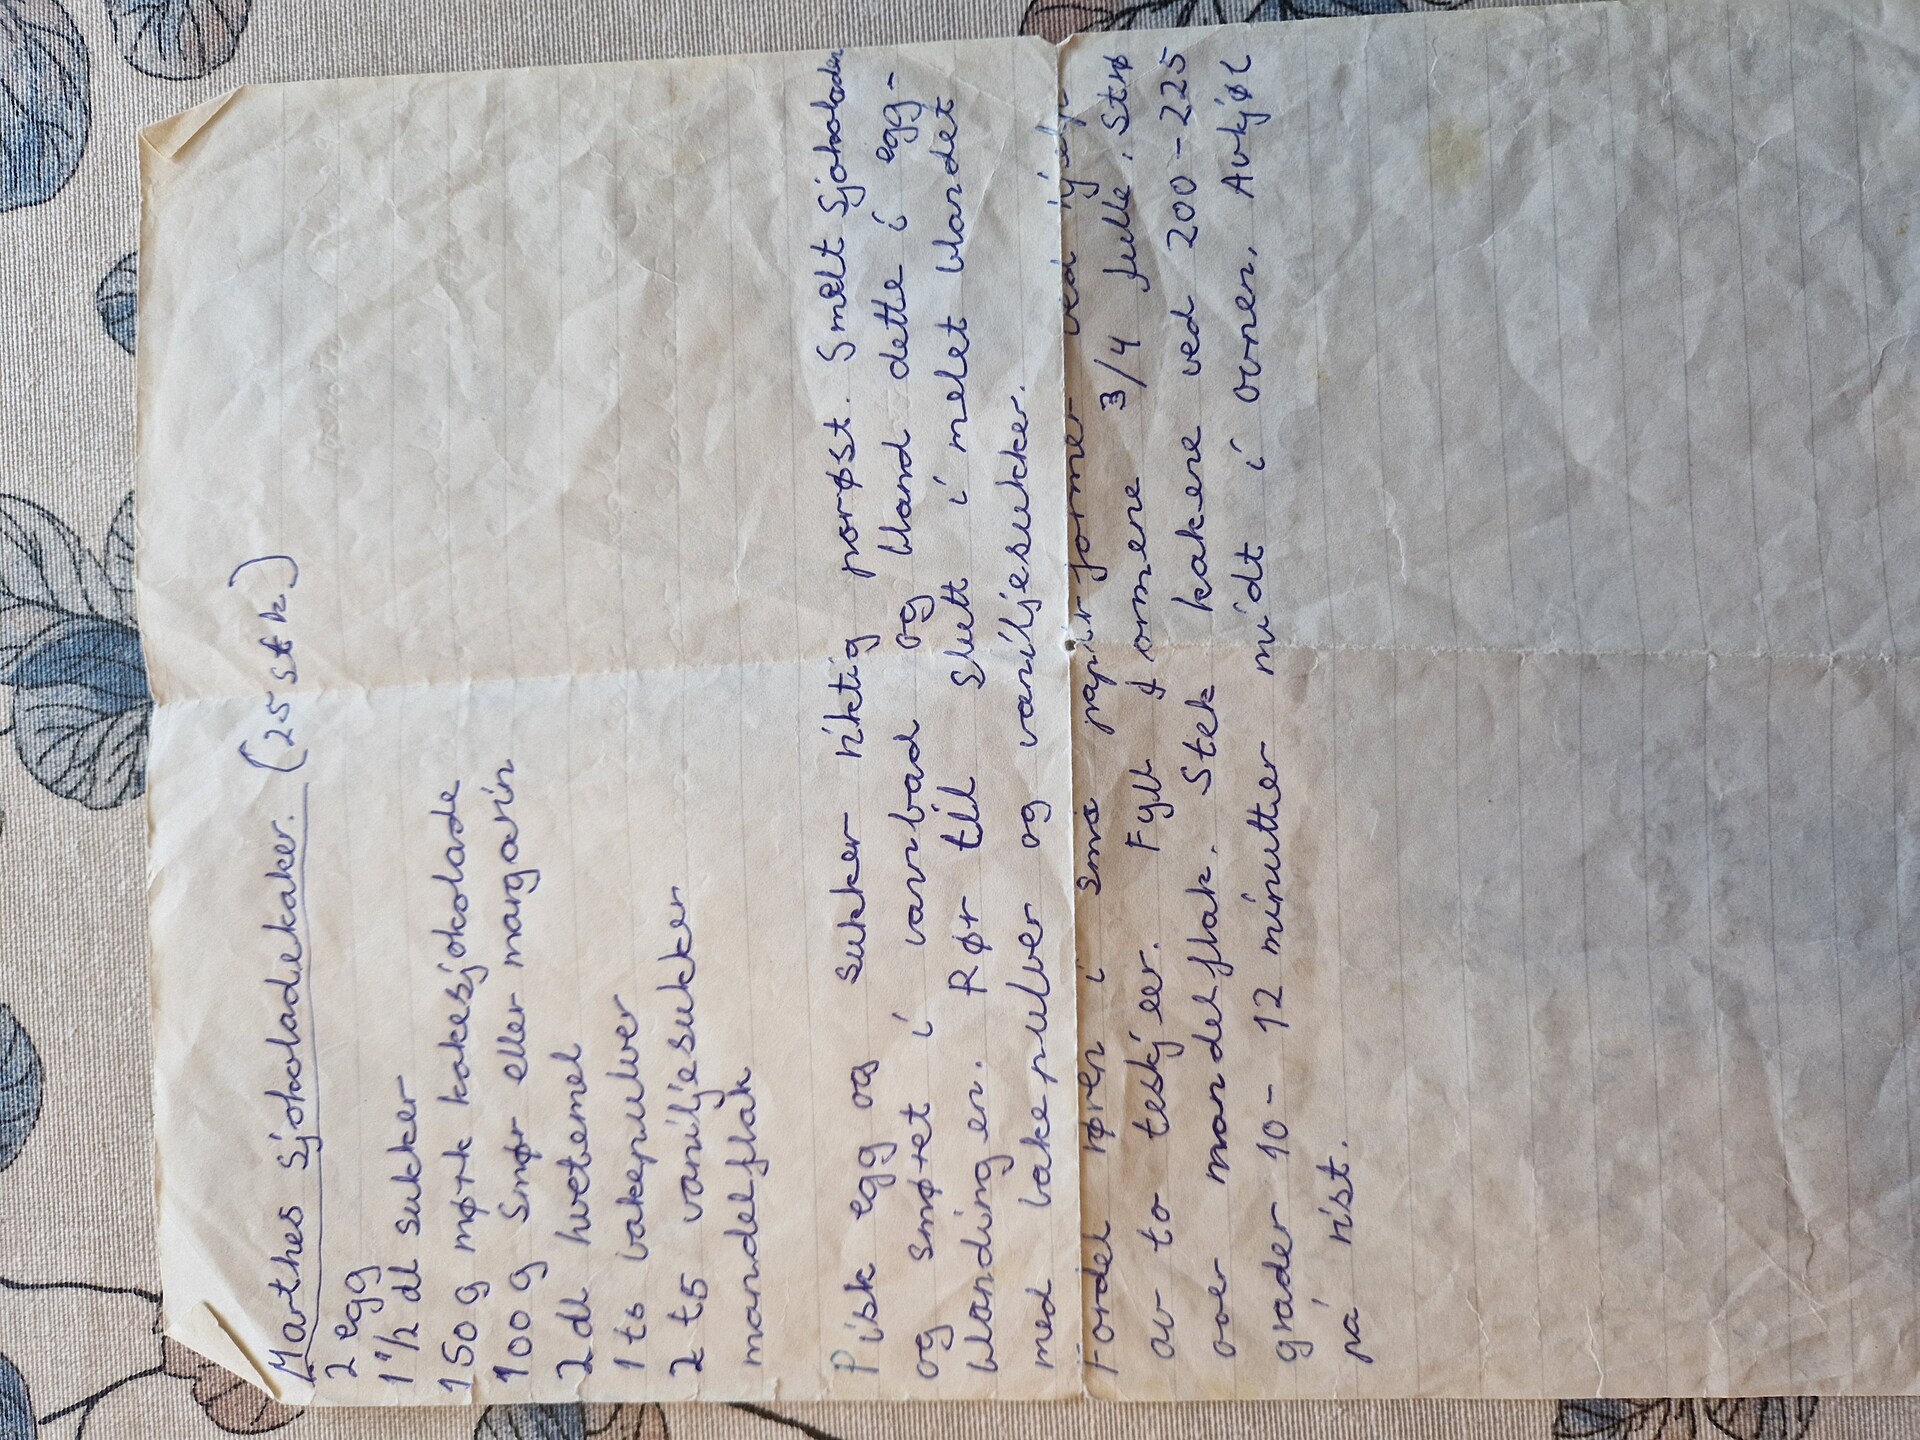 Marthes sjokoladekaker. (25 stk.)
2 egg
1 1/2 dl sukker
150 g mørk kokesjokolade
100 g Smør eller margarin
2 dl hvetemel
1 ts bakepulver
2 ts vaniljesukker
mandelflak
Pisk egg og sukker riktig porøst. Smelt sjokoladen
og smøret i vannbad og bland dette i egg-
blandingen. Rør til slutt i melet blandet
med bakepulver og vaniljesukker.
Fordel røren i små papirformer ved hjelp
av to teskjeer. Fyll formene 3/4 fulle. Strø
over mandelflak. Stek kakene ved 200-225
grader 10-12 minutter midt i ovnen. Avkjøl
på rist.